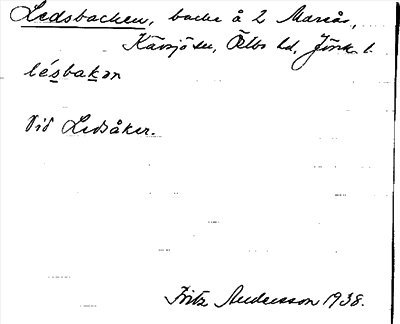 Ledsbacken, backe å 2 Marås,
Kävsjö sn, Östbo hd, Jönk. l.
lésbakən
Vid Ledsåker.
Fritz Andersson 1938.